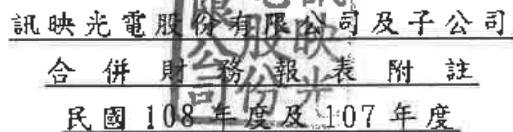 訊映光電股份有限公司及子公司
合併財務報表附註
民國 108 年度及 107 年度